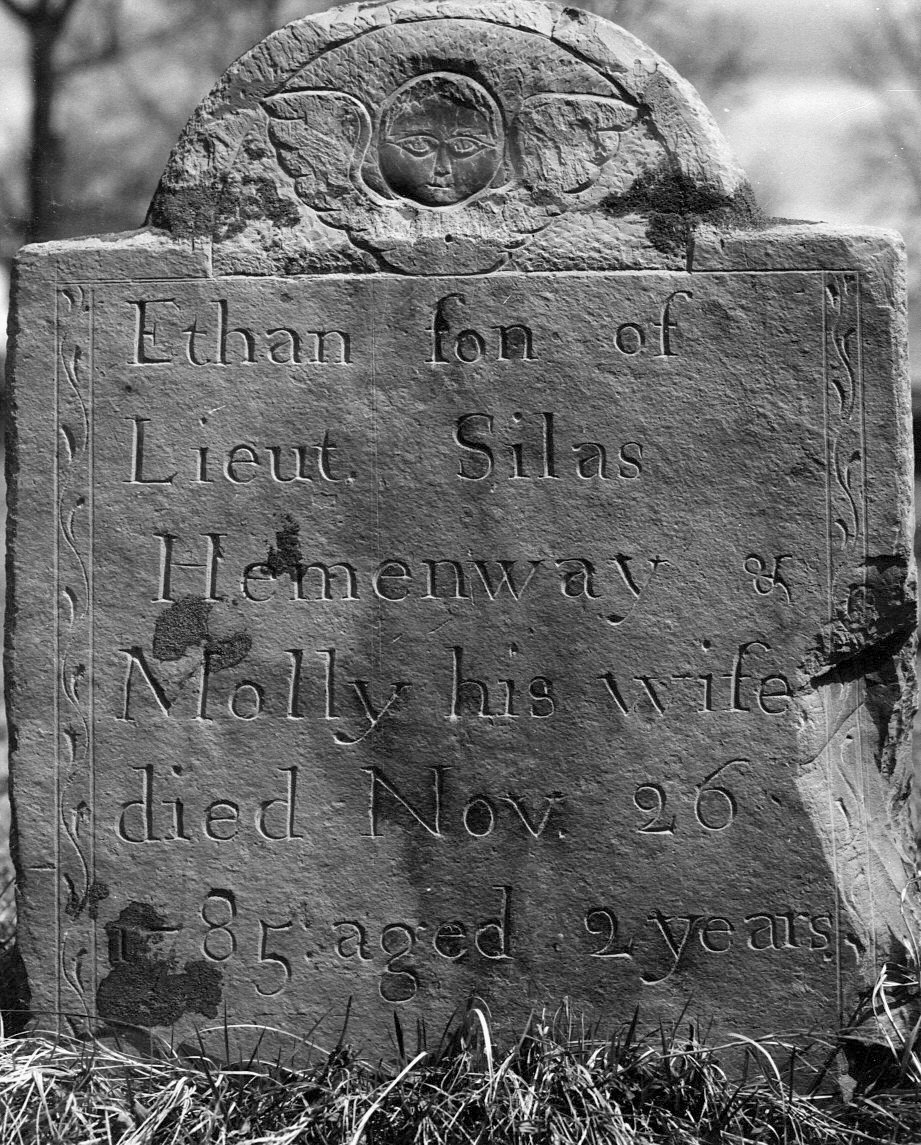 Ethan ſon of
Lieut. Silas
Hemenway &
Molly his wife
died Nov. 26
1785. aged 2 years.